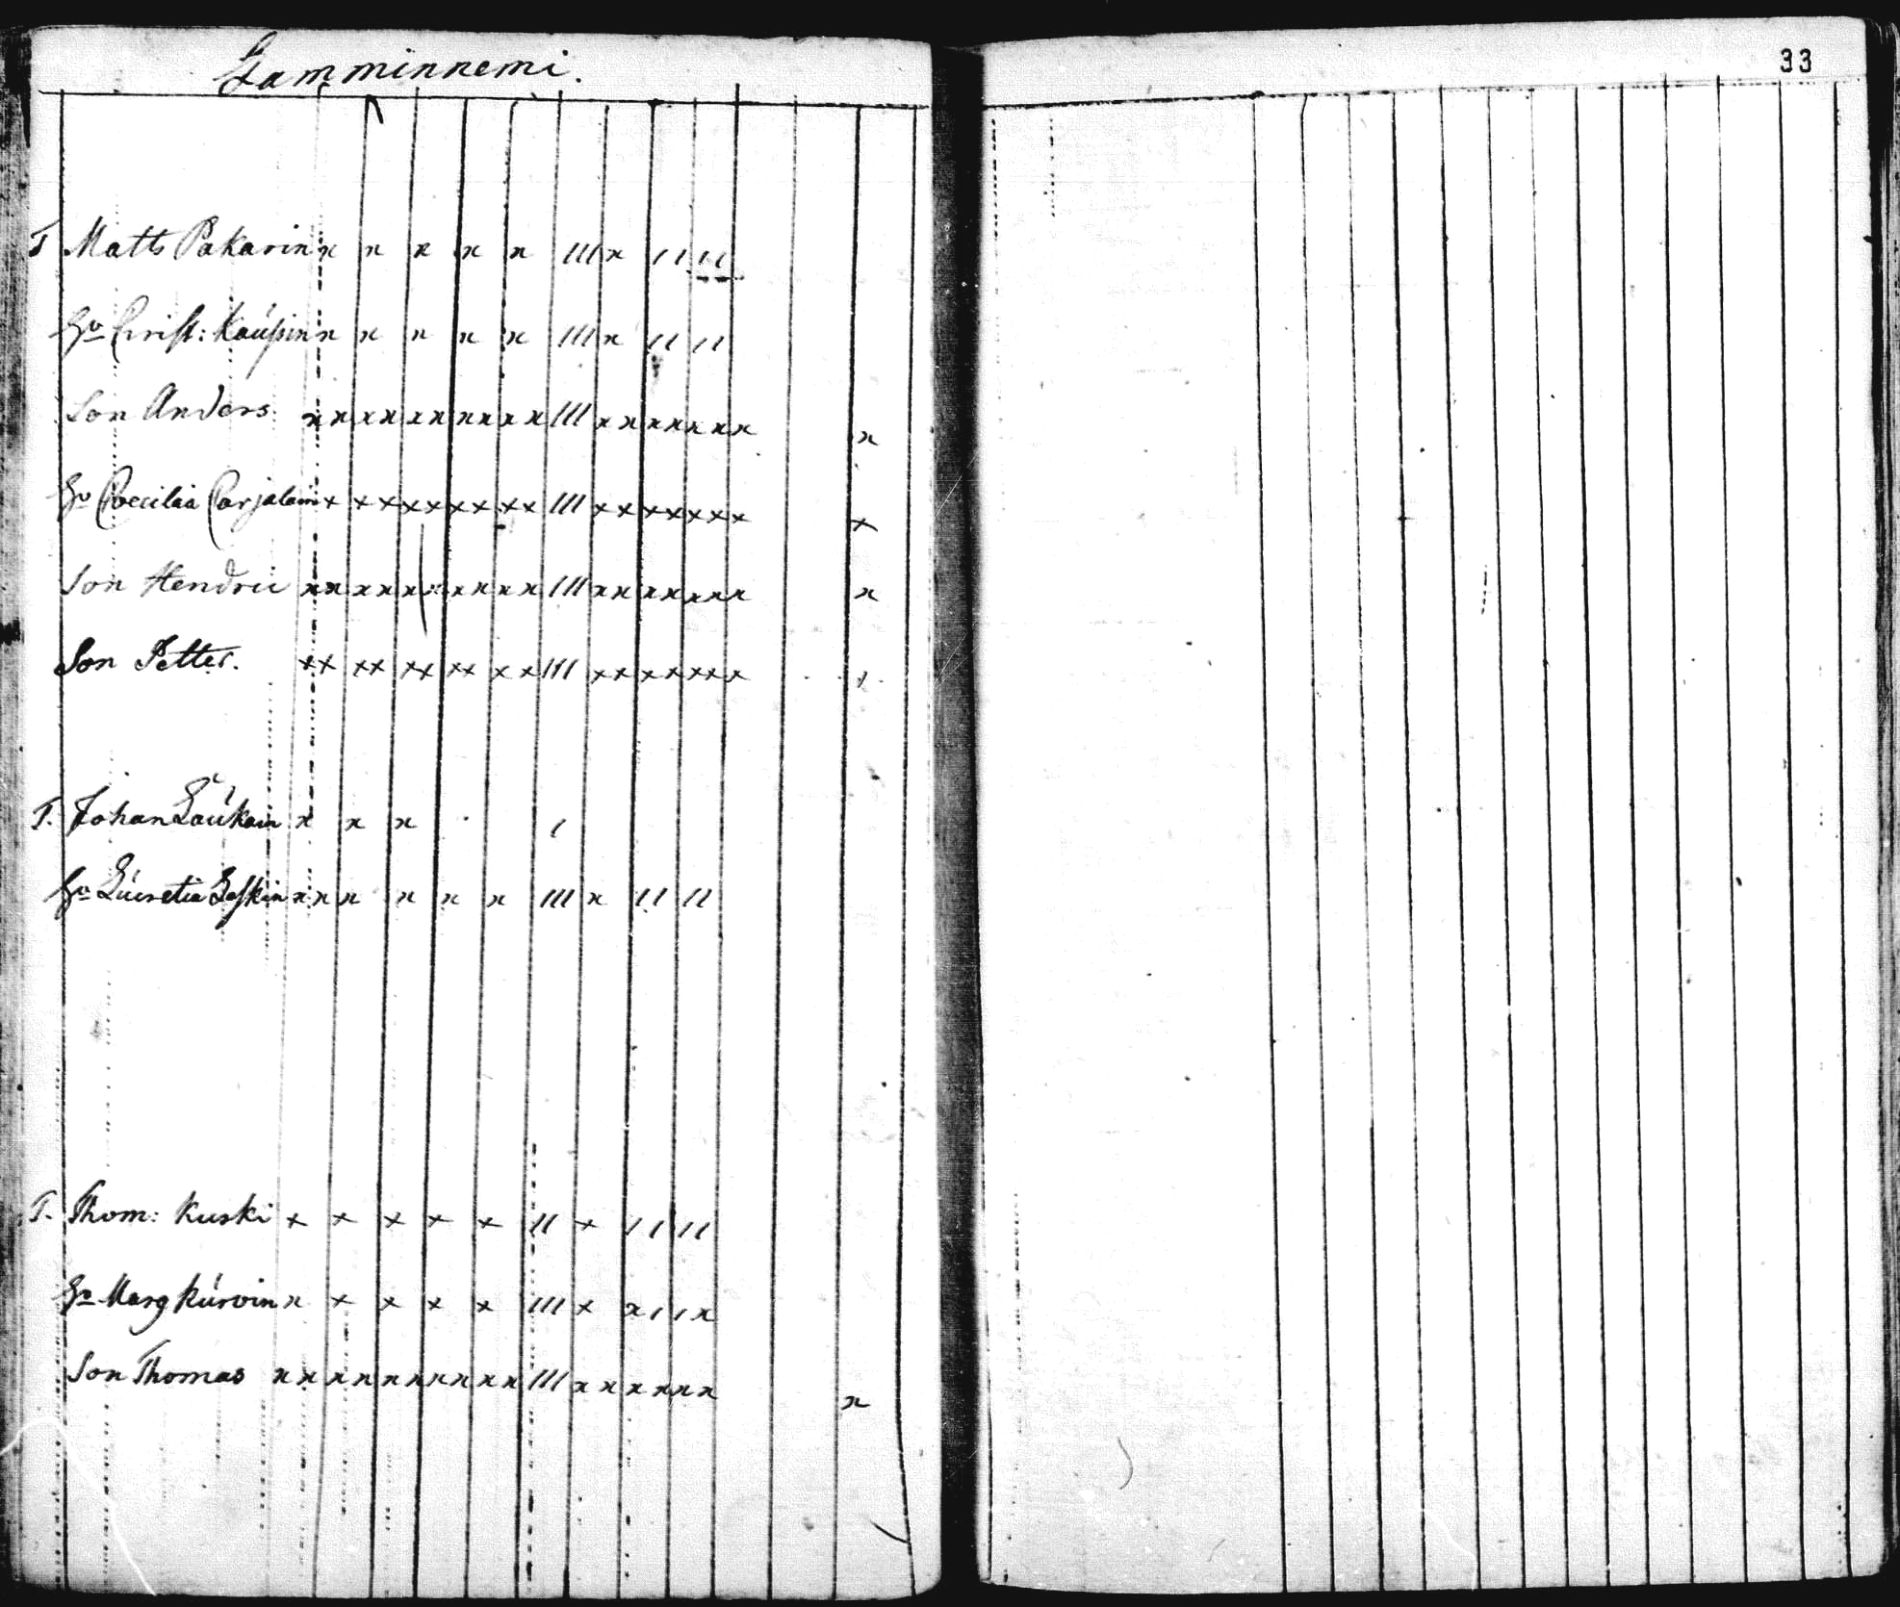 Lamminnemi.
33
T Matts Pakarin x x x x x III x II II
Hu Christ: Kaúpin x x x x x III x II II
Son Anders x x x x x x x x x x III x x x x x x x x
Hu Coecilia Carjalain x x x x x x x x x III x x x x x x x x
Son Hendric x x x x x x x x x x III x x x x x x x x
Son Petter. x x x x x x x x x x III x x x x x x x x
T. Johan Laúkain x x x I
Hu Lúcretia Leskin x x x x x x III x II II
T. Thom: Kuski x x x x x II x II II
Hu Marg Kúrvin x x x x x III x x I I x
Son Thomas x x x x x x x x x x III x x x x x x x